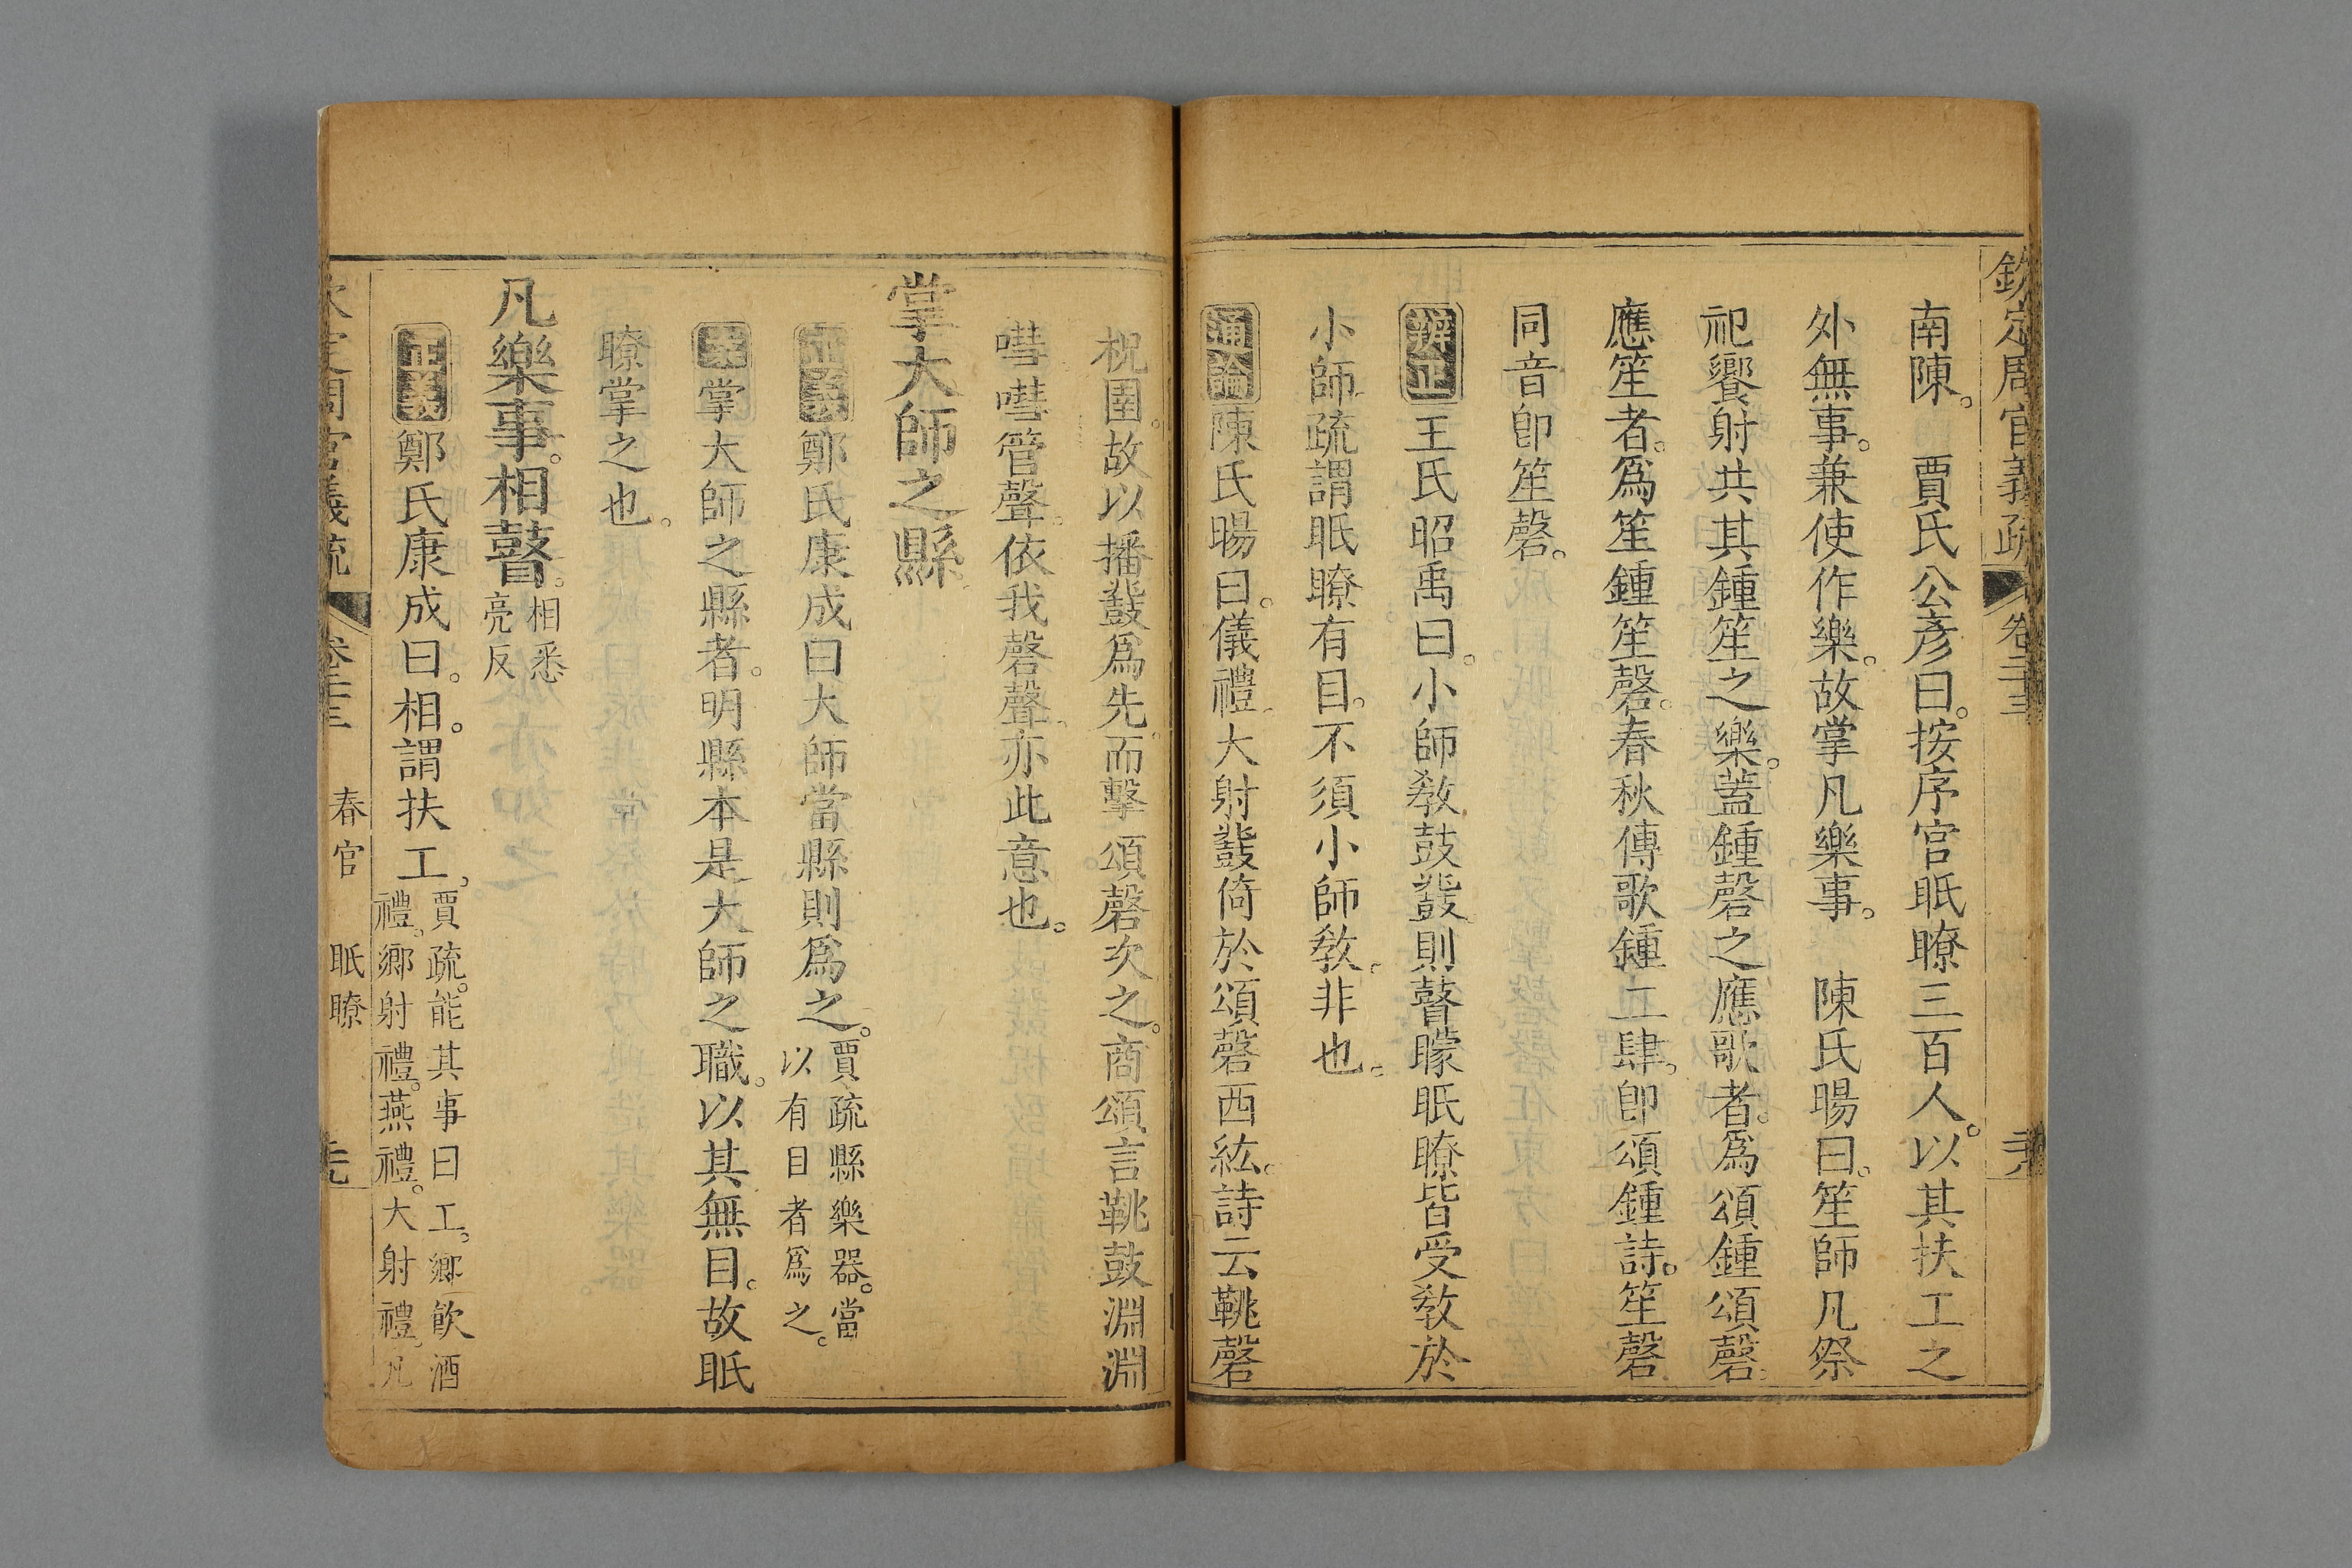 欽定周官義疏 卷三十三
南陳。 賈氏公彥曰。按序官眂瞭三百人。以其扶工之
外無事。兼使作樂。故掌凡樂事。 陳氏暘曰。笙師凡祭
祀饗射共其鍾笙之樂。蓋鍾磬之應歌者。爲頌鍾頌磬。
應笙者。爲笙鍾笙磬。春秋傳歌鍾二肆。卽頌鍾詩。笙磬
同音卽笙磬。
辨正王氏昭禹曰。小師敎鼓鼗則瞽矇眂瞭皆受敎於
小師疏謂眂瞭有目。不須小師敎。非也。
通論陳氏暘曰。儀禮大射鼗倚於頌磬西紘。詩云鞉磬
柷圉。故以播鼗爲先而擊頌磬次之。商頌言鞉鼓淵淵
嘒嘒管聲。依我磬聲。亦此意也。
掌大師之縣
正義鄭氏康成曰大師當縣則爲之。賈疏縣樂器。當
以有目者爲之。
案掌大師之縣者。明縣本是大師之職。以其無目。故眂
瞭掌之也。
凡樂事。相瞽。相悉
亮反
正義鄭氏康成曰。相。謂扶工。賈疏。能其事曰工。鄉飮酒
禮。鄉射禮。燕禮。大射禮。凡
周官義疏 卷三十三 春官 眂瞭